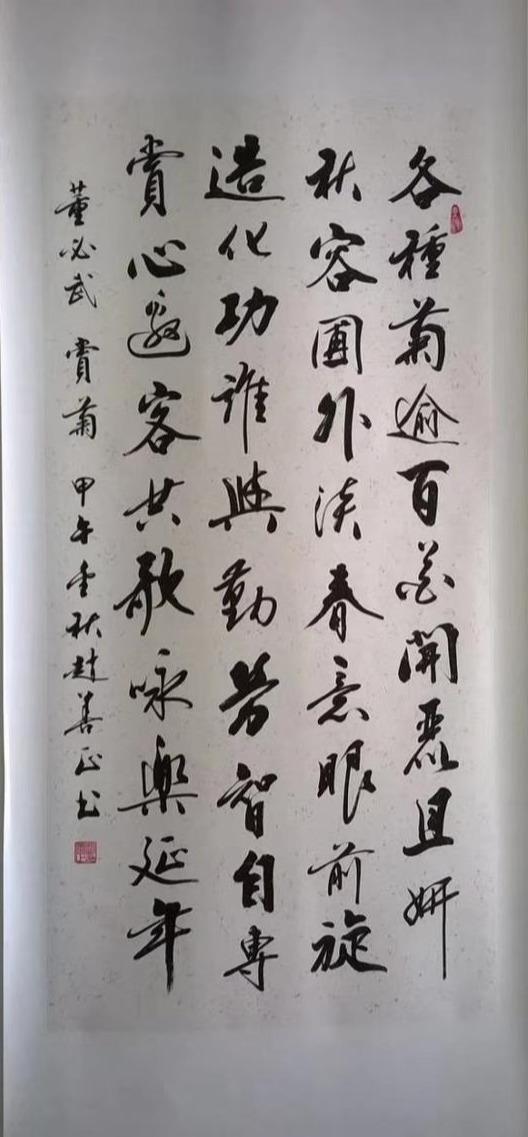 各種菊逾百花開麗且妍
秋容圃外淡春意眼前旋
造化功誰與勤勞智自專
賞心邀客共歌詠樂延年
董必武 賞菊 甲午季秋趙善正書